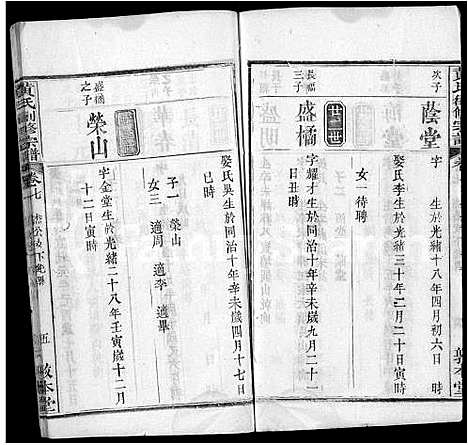 次子
蔭堂
字　生於　十八年四月初六日　時
娶氏李生於光緒三十年二月二十日寅時
女一待聘
廿三世
長福
三子
盛橘
字耀才生於同治十年辛未歲九月二十一
日丑時
娶氏吳生於同治十年辛未歲四月十七日
巳時
子一　榮山
女三　適周　適李　適畢
盛橘
之子
榮山
字金堂生於光緒二十八年壬寅歲十二月
十二日寅時
黃氏創修宗譜
卷七
五
敦本堂